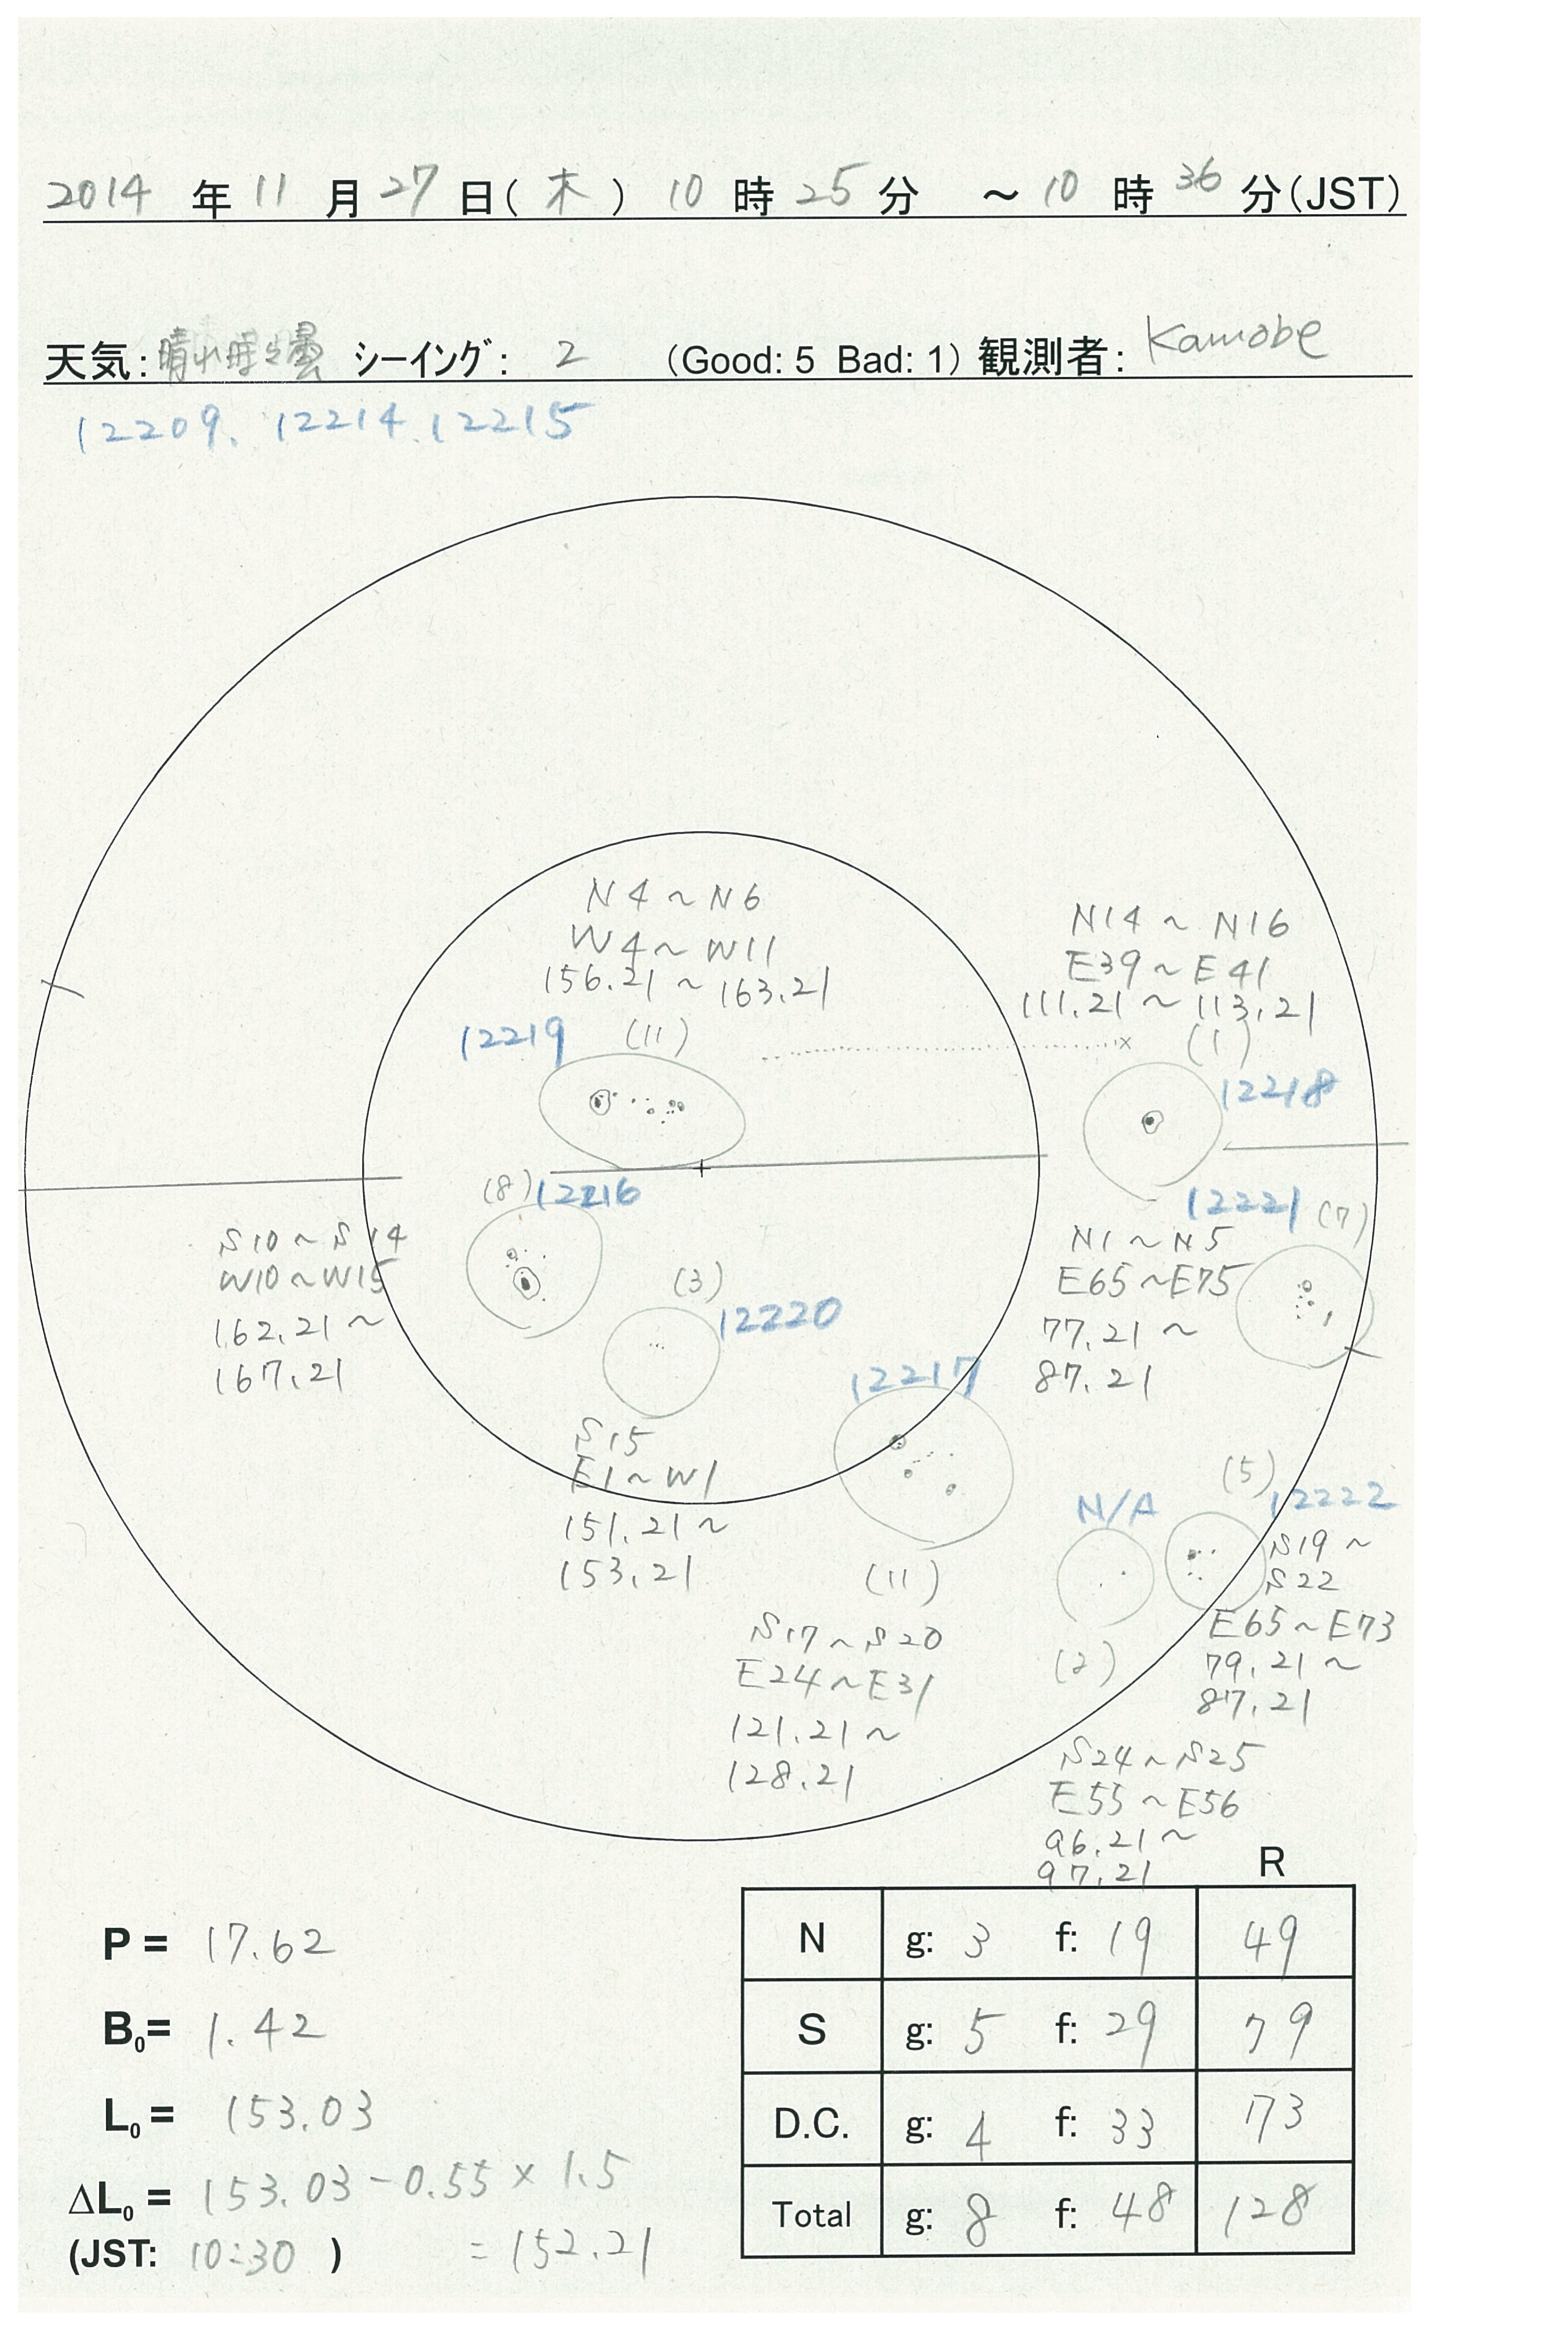 2014 年 11 月 27 日(木) 10 時 25 分 ～ 10 時 36 分(JST)
天気: 晴れ時々曇 シーイング: 2 (Good: 5 Bad: 1) 観測者: Kamobe
12209. 12214. 12215
N4～N6
W4～W11
156.21～163.21
12219 (11)
N14～N16
E39～E41
111.21～113.21
(1)
12218
(8) 12216
S10～S14
W10～W15
162.21～
167.21
(3)
12220
S15
E1～W1
151.21～
153.21
12221 (7)
N1～N5
E65～E75
77.21～
87.21
12217
(11)
S17～S20
E24～E31
121.21～
128.21
N/A
(2)
S24～S25
E55～E56
96.21～
97.21
(5)
12222
S19～
S22
E65～E73
79.21～
87.21
R
N g: 3 f: 19 49
S g: 5 f: 29 79
D.C. g: 4 f: 33 73
Total g: 8 f: 48 128
P = 17.62
B0= 1.42
L0 = 153.03
ΔL0 = 153.03-0.55×1.5
(JST: 10:30 ) =152.21